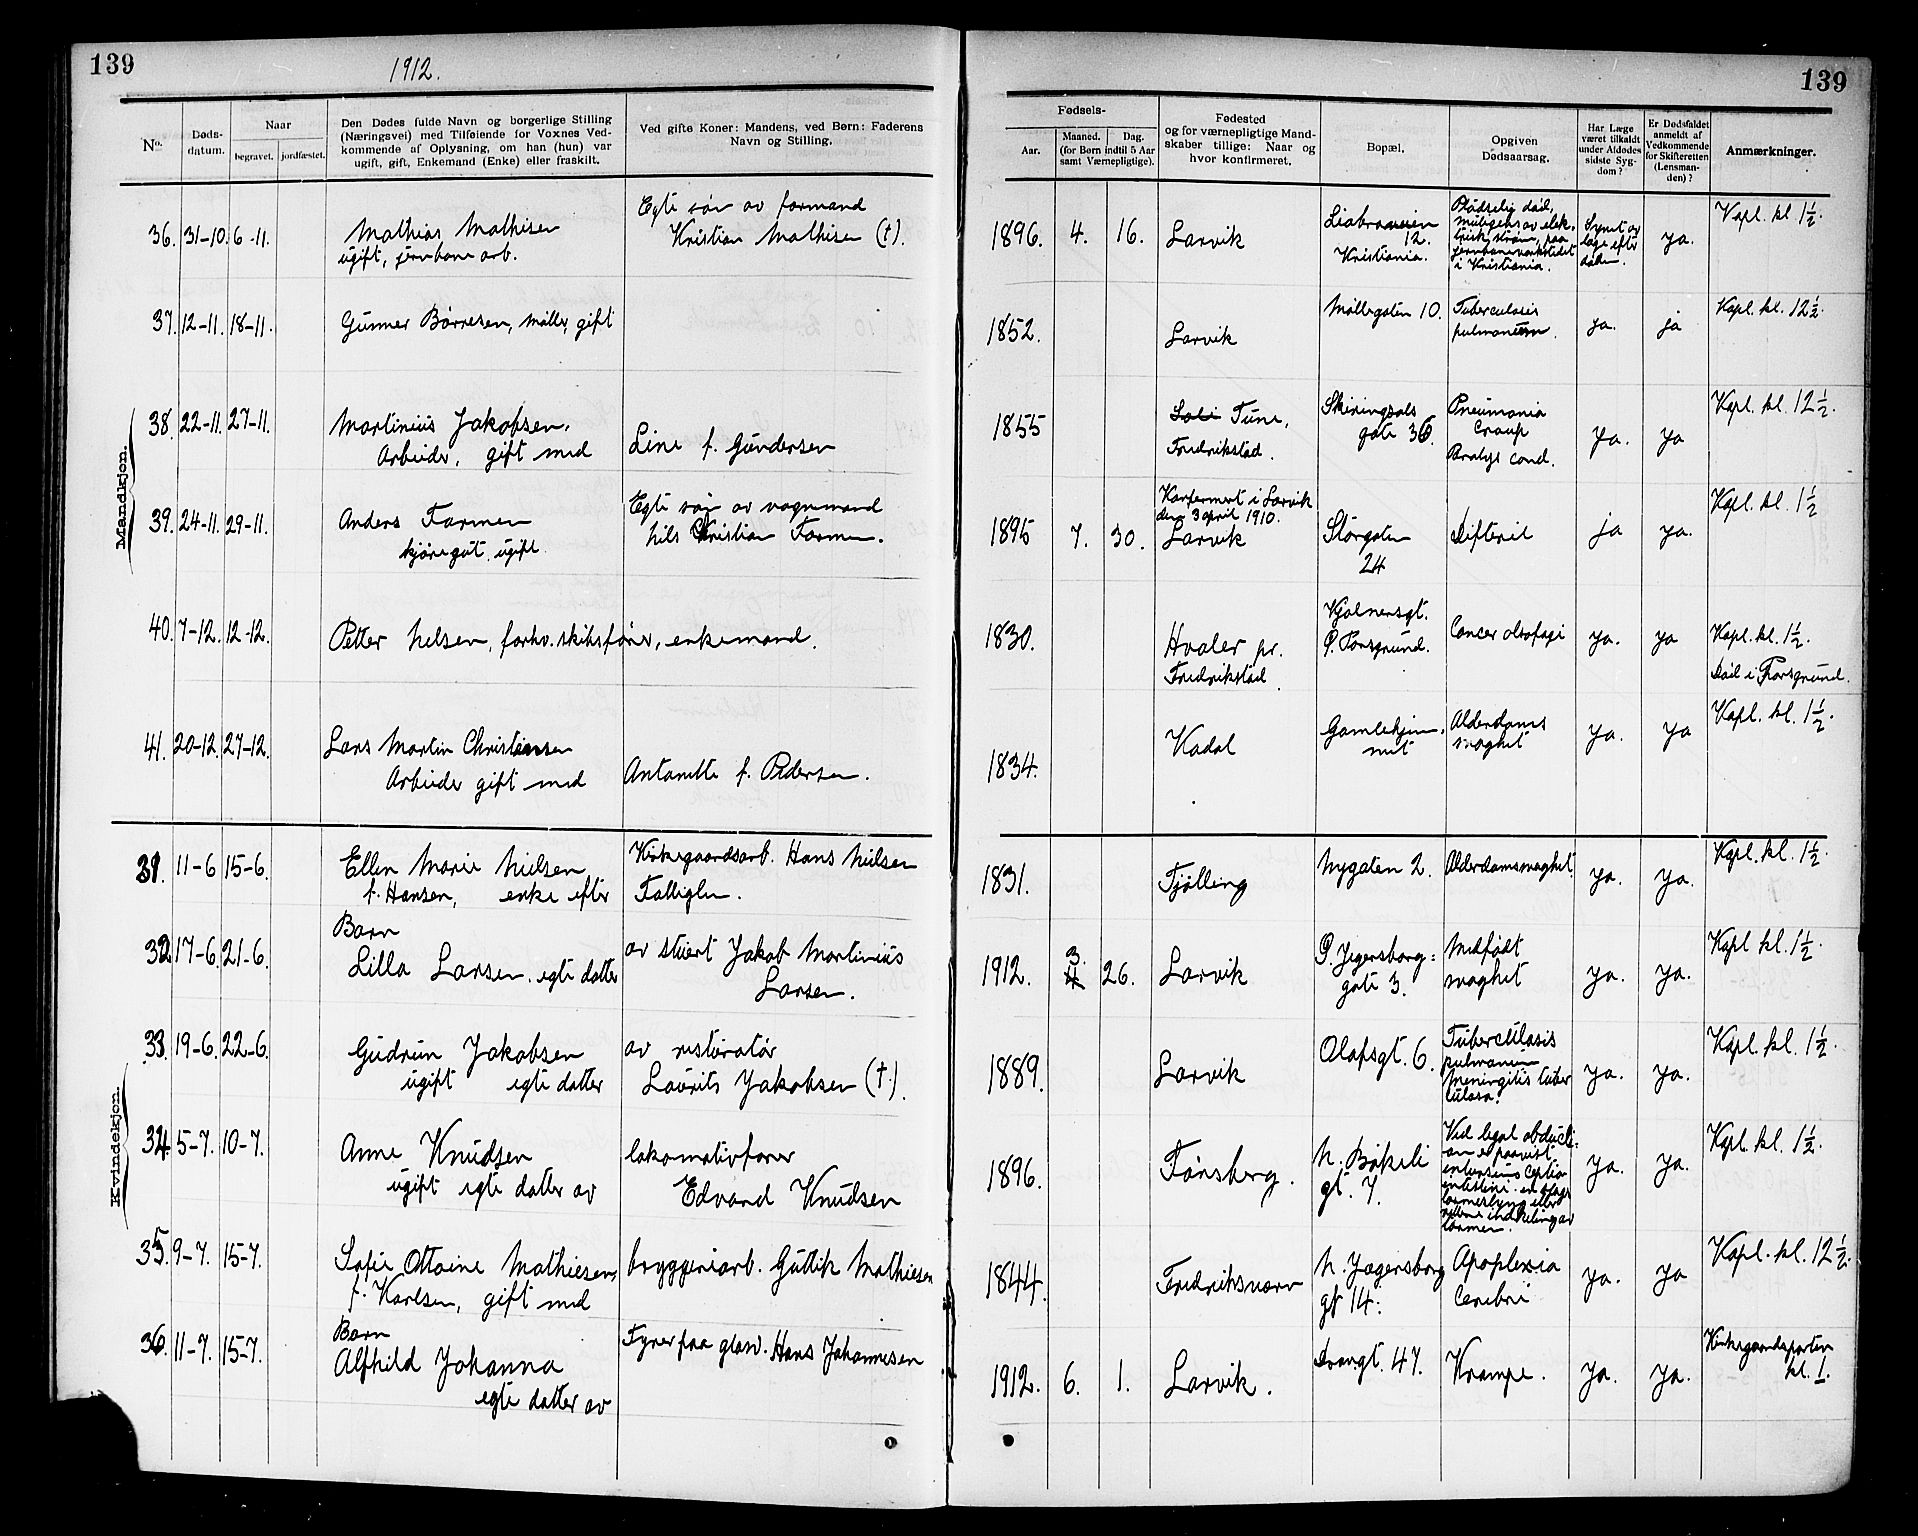 139
1912.
139
No.
Døds-
datum.
Naar
begravet.
jordfæstet.
Den Dødes fulde Navn og borgerlige Stilling
(Næringsvei) med Tilføiende for Voxnes Ved-
kommende af Oplysning, om han (hun) var
ugift, gift, Enkemand (Enke) eller fraskilt.
Ved gifte Koner: Mandens, ved Børn: Faderens
Navn og Stilling.
Fødsels-
Aar.
Maaned. Dag.
(for Børn indtil 5 Aar
samt Værnepligtige).
Fødested
og for værnepligtige Mand-
skaber tillige: Naar og
hvor konfirmeret.
Bopæl.
Opgiven
Dødsaarsag.
Har Læge
været tilkaldt
under Afdødes
sidste Syg-
dom?
Er Dødsfaldet
anmeldt af
Vedkommende
for Skifteretten
(Lensman-
den)?
Anmærkninger.
Mandkjøn.
36. 31-10. 6-11.
Mathias Mathisen
ugift, jernbane arb.
Egte søn av formand
Kristian Mathisen (†).
1896. 4. 16. Larvik
Liabraaveien
12.
Kristiania.
Plødselig død,
muligens av elek-
trisk strøm, paa
jernbaneverkstedet
i Kristiania.
Synet av
læge efter
døden.
ja.
Kapl. kl 1½.
37. 12-11. 18-11.
Gunner Børresen, møller, gift
1852. Larvik
Møllegaten 10.
Tuberculosis
pulmonum.
ja. ja
Kapl. kl. 12½.
38. 22-11. 27-11.
Martinius Jakobsen,
Arbeider, gift med
Line f. Gundersen
1855
Tune,
Fredrikstad.
Skiringsals
gate 36.
Pneumonia
Croup
Paralys cond.
ja. ja
Kapl. kl. 12½.
39. 24-11. 29-11.
Anders Farmen
kjøregut. ugift
Egte søn av vognmand
Nils Kristian Farmen.
1895 7. 30.
Konfermert i Larvik
den 3 april 1910.
Larvik
Storgaten
24
Difterit
ja ja.
Kapl. kl. 1½
40. 7-12. 12-12.
Petter Nelsen, forhv. skibsfører, enkemand.
1830.
Hvaler pr.
Fredrikstad
Kjølnersgt.
P. Porsgrund.
Cancer olsofagi
ja. ja
Kapl. kl. 1½.
Død i Porsgrund.
41. 20-12. 27-12.
Lars Martin Christiansen
Arbeider gift med
Antonette f. Pedersen.
1834. Kodal
Gamlehjem-
met
Alderdoms
svaghet
ja. ja
Kapl. kl. 1½.
Kvindekjøn.
31. 11-6 15-6.
Ellen Marie Nielsen
f. Hansen, enke efter
Kirkegaardsarb. Hans Nielsen
1831. Tjølling
Nygaten 2.
Alderdomsvaghet.
ja. ja.
Kapl. kl. 1½.
32 17-6. 21-6.
Barn
Lilla Larsen. egte datter
av stuert Jakob Martinius
Larsen.
1912. 3. 26. Larvik
Ø. Jegersborg=
gate 3.
Medfødt
svaghet
ja. ja.
Kapl kl. 1½.
33. 19-6. 22-6.
Gudrun Jakobsen
ugift egte datter
av restoratør
Laurits Jakobsen (†).
1889. Larvik
Olafsgt. 6.
Tuberculosis
pulmonum
meningitis tuber
culosa.
ja. ja.
Kapl. kl. 1½.
34. 5-7. 10-7.
Anne Knudsen
ugift egte datter av
lokomotivfører
Edvard Knudsen
1896. Tønsberg.
N. Bøkeli
gt. 7.
Ved legal obducti-
on er paavist
ja. ja.
Kapl. kl. 1½.
35. 9-7. 15-7.
Sofie Ottoine Mathiesen,
f. Karlsen, gift med
bryggeriarb. Guttik Mathiesen
1844. Fredriksværn
N. Jægersborg
gt 14.
Apoplexia
Cerebri
ja. ja
Kapl. kl. 12½.
36. 11-7. 15-7.
Barn
Alfhild Johanna
egte datter av
Fyrer paa glasv. Hans Johannesen
1912. 6. 1. Larvik.
Dronngt. 47.
Krampe.
ja. ja.
Kirkegaardsporten
kl. 1.